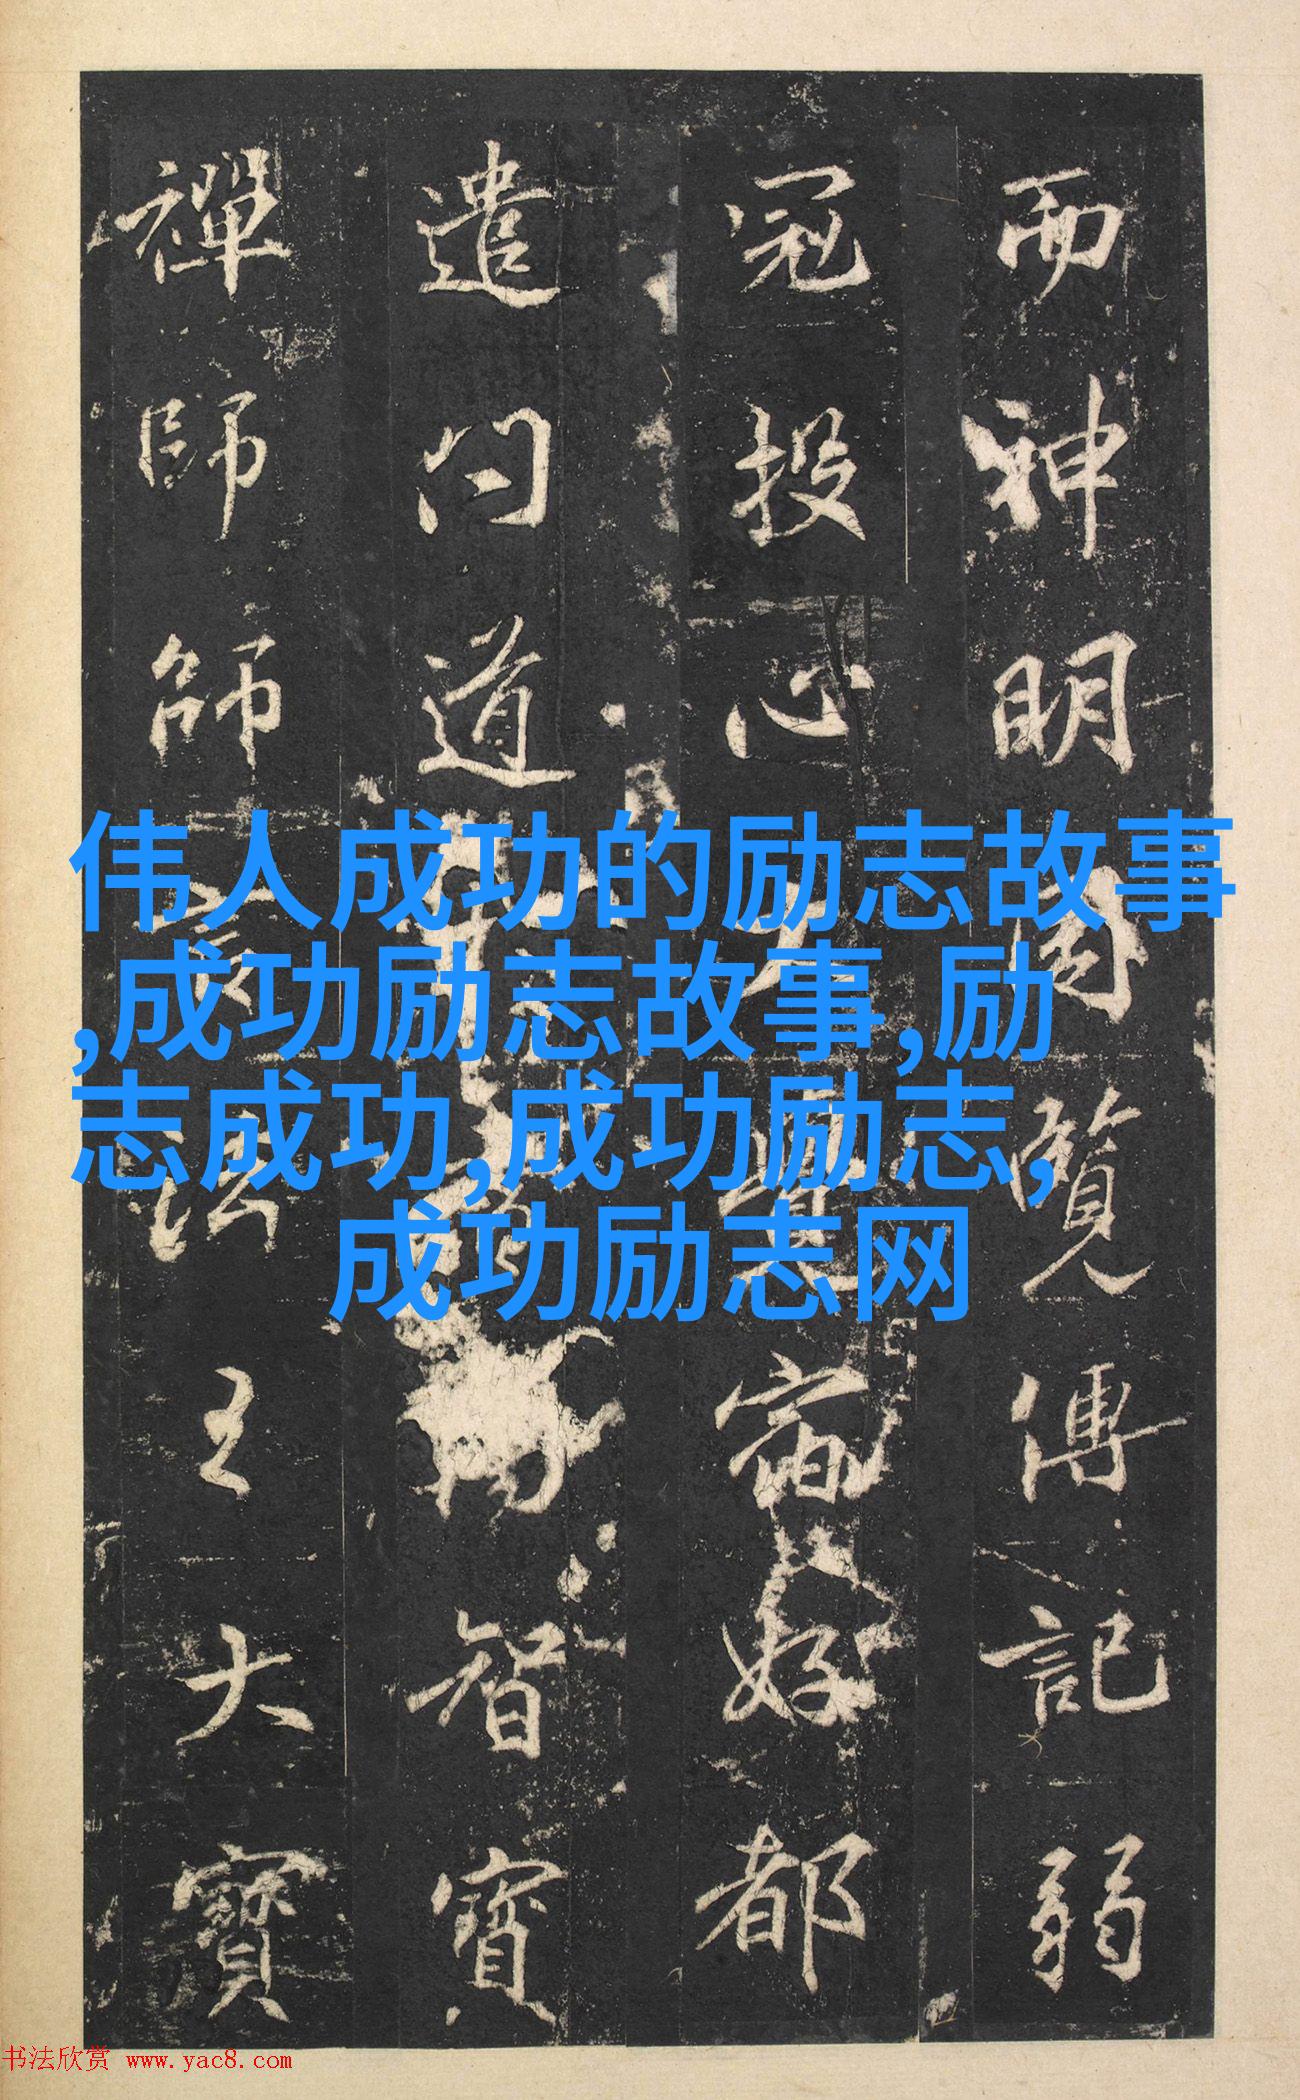 而神明覽傳記弱
冠投心好都
遣問道智寶
禪師師言法王大寶
伟人成功的励志故事
,成功励志故事,励
志成功,成功励志,
成功励志网
书法欣赏 www.yac8.com